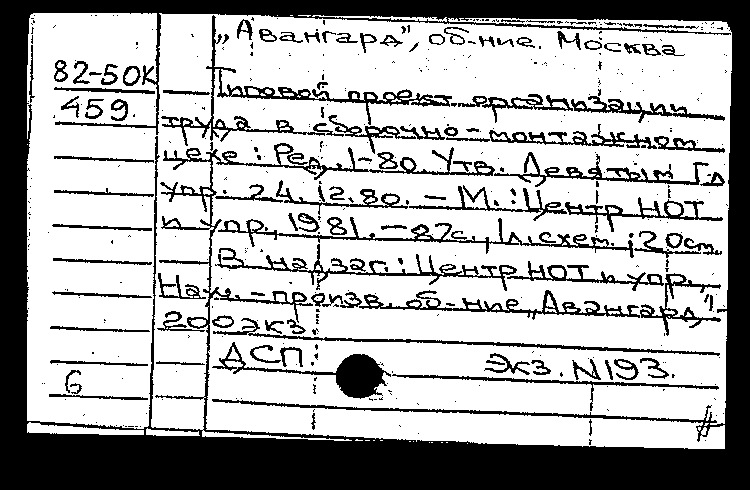 „Авангард", об-ние. Москва
82-50К
459
Типовой проект организации
труда в сборочно-монтажном
цехе : Ред. 1-80. Утв. Девятым Гл.
упр. 24.12.80. – М. : Центр НОТ
и упр., 1981. – 87с., 1л.схем. ; 20см.
В надзаг. : Центр НОТ и упр.,
Науч.-произв. об-ние „Авангард",
200экз.
ДСП. Экз. N193.
6